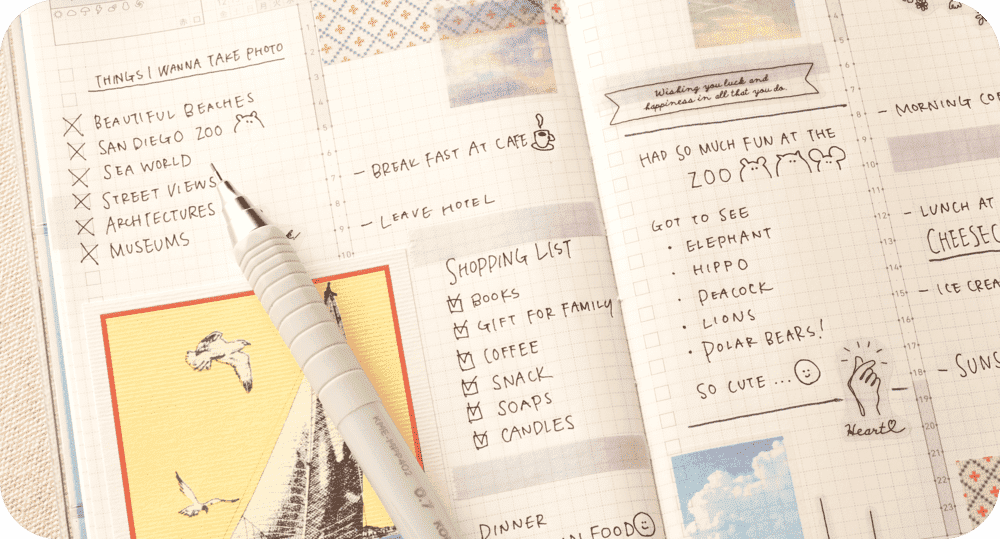 THINGS I WANNA TAKE PHOTO
BEAUTIFUL BEACHES
SAN DIEGO ZOO
SEA WORLD
STREET VIEWS
ARCHTECTURES
MUSEUMS
- BREAK FAST AT CAFE
- LEAVE HOTEL
SHOPPING LIST
BOOKS
GIFT FOR FAMILY
COFFEE
SNACK
SOAPS
CANDLES
DINNER
FOOD
0.7
Wishing you luck and
happiness in all that you do.
HAD SO MUCH FUN AT THE
ZOO
GOT TO SEE
• ELEPHANT
• HIPPO
• PEACOCK
• LIONS
• POLAR BEARS!
SO CUTE ...
Heart
- MORNING
- LUNCH AT
- ICE
2
3
4
5
6
7
8
9
10
11
12
13
14
15
16
17
18
19
20
21
22
23